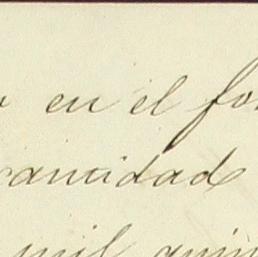 en el fo
cantidad
mil quin